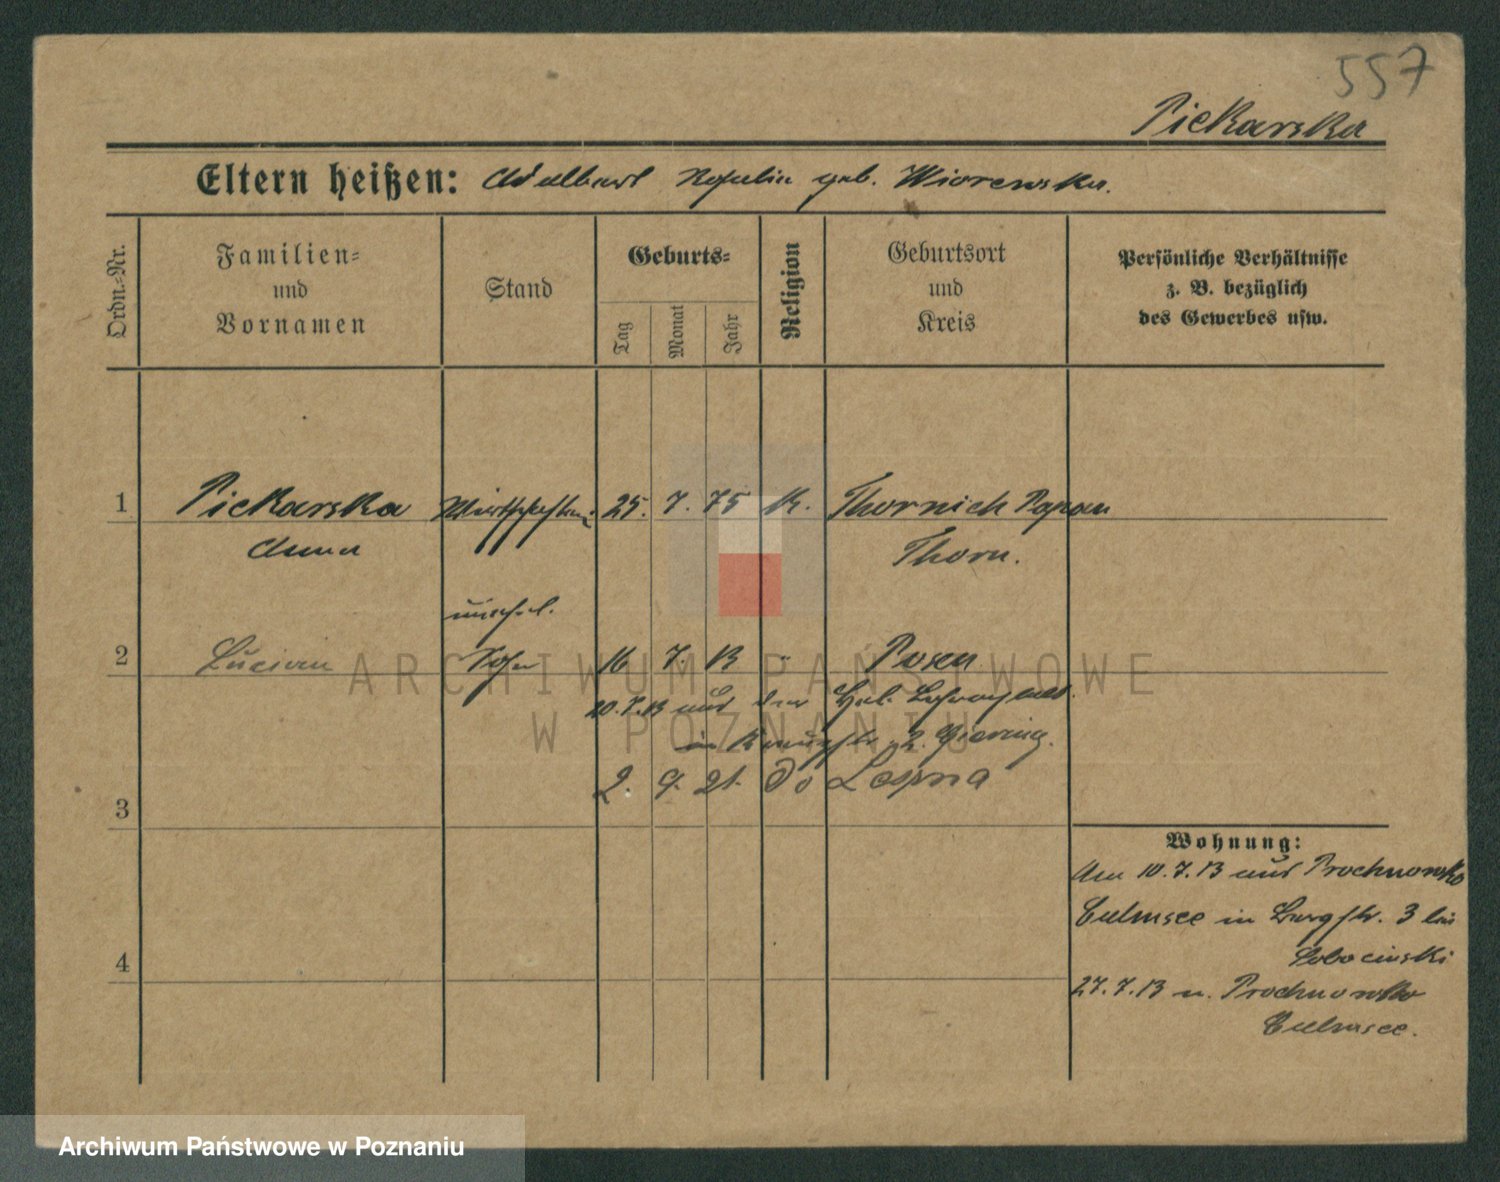 557
Piekarska
Eltern heißen: Adalbert geb. Wiorewska.
Ordn.=Nr.
Familien=
und
Vornamen
Stand
Geburts=
Tag
Monat
Jahr
Religion
Geburtsort
und
Kreis
Persönliche Verhältnisse
z. B. bezüglich
des Gewerbes usw.
1 Piekarska 25. 7. 75 K. Thornisch Papau
Anna Thorn.
unehel.
2 Lucian Sohn 16 7. 13 " Posen
20.7.13 aus der Heb.
in 2.
2. 9. 21. do
3
Wohnung:
Am 10.7.13 aus Prochnowko
Culmsee in Burgstr. 3 bei
Sobocinski
4
27.7.13 n. Prochnowko
Culmsee.
ARCHIWUM PAŃSTWOWE
W POZNANIU
Archiwum Państwowe w Poznaniu